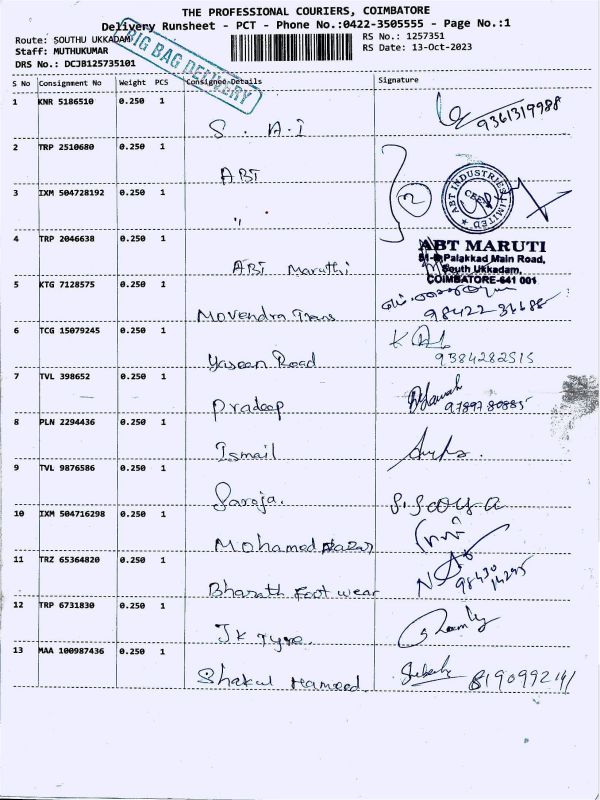 THE PROFESSIONAL COURIERS, COIMBATORE
Delivery Runsheet - PCT - Phone No.:0422-3505555 - Page No.:1
Route: SOUTHU UKKADAM
RS No.: 1257351
Staff: MUTHUKUMAR
RS Date: 13-Oct-2023
DRS No.: DCJB125735101
BIG BAG DELIVERY
S No Consignment No Weight PCS Consignee Details Signature
1 KNR 5186510 0.250 1
S. A.I 9361319988
2 TRP 2510680 0.250 1
ABT 2
ABT INDUSTRIES LIMITED
3 IXM 504728192 0.250 1
"
4 TRP 2046638 0.250 1
ABT Maruthi
ABT MARUTI
Palakkad Main Road,
South Ukkadam,
COIMBATORE-641 001
5 KTG 7128575 0.250 1
Movendra Trans 98422-36688
6 TCG 15079245 0.250 1
Yaseen Road 9384282515
7 TVL 398652 0.250 1
Pradeep 9789780885
8 PLN 2294436 0.250 1
Ismail
9 TVL 9876586 0.250 1
Saroja. S. Saroja
10 IXM 504716298 0.250 1
Mohamed
11 TRZ 65364820 0.250 1
Bharath Foot wear 98430 14295
12 TRP 6731830 0.250 1
JK Tyre.
13 MAA 100987436 0.250 1
Shakul Hameed